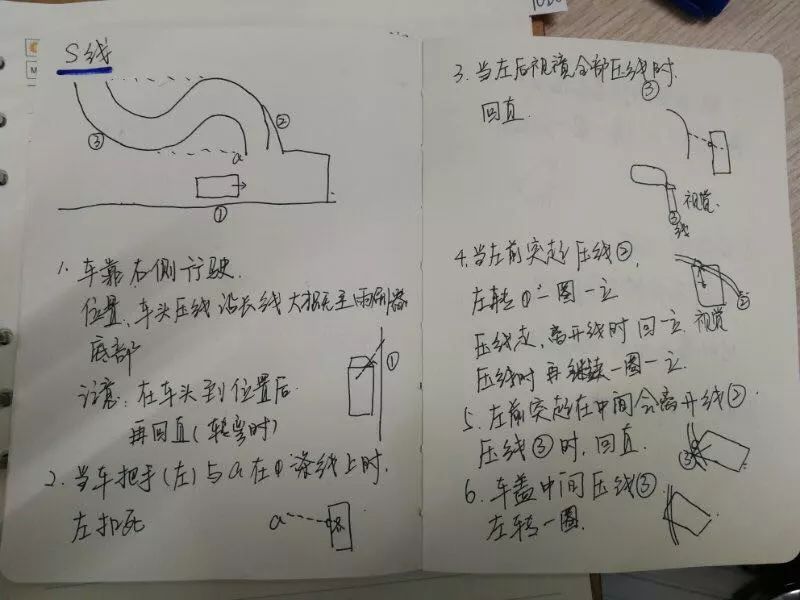 S线
③
②
a
①
1. 车靠右侧行驶.
位置、车头压线 沿长线 大概至雨刷器
底部
注意: 在车头到位置后
再回直(转弯时)
①
2. 当车把手(左)与a在 条线上时.
左扣死
a
3. 当左后视镜全部压线时.
回直.
③
视觉.
③
线
4. 当左前突起压线②,
左转 一圈一立
压线走, 离开线时回一立. 视觉
②
压线时再继续一圈一立.
5. 左前突起在中间会离开线②.
压线③时, 回直.
③
6. 车盖中间压线③
左转一圈.